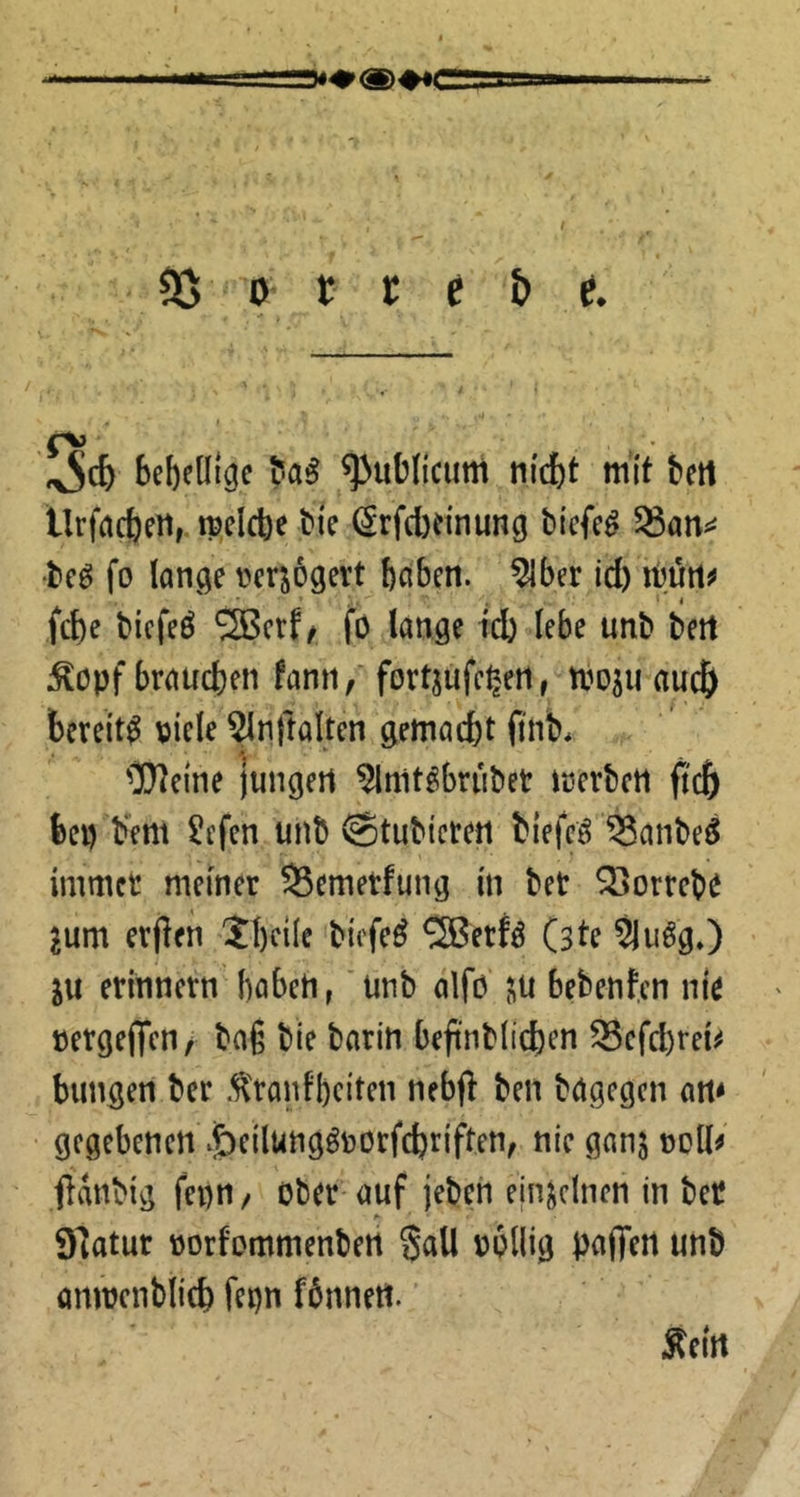 Vorrede.
Ich behellige das Publicum nicht mit den
Ursachen, welche die Erscheinung dieses Ban-
des so lange verzögert haben. Aber ich wün-
sche dieses Werk, so lange ich lebe und den
Kopf brauchen kann, fortzusetzen, wozu auch
bereits viele Anstalten gemacht sind.
Meine jungen Amtsbrüder werden sich
bey dem Lesen und Studieren dieses Bandes
immer meiner Bemerkung in der Vorrede
zum ersten Theile dieses Werks (3te Ausg.)
zu erinnern haben, und also zu bedenken nie
vergessen, daß die darin befindlichen Beschrei-
bungen der Krankheiten nebst den dagegen an-
gegebenen Heilungsvorschriften, nie ganz voll-
ständig seyn, oder auf jeden einzelnen in der
Natur vorkommenden Fall völlig passen und
anwendlich seyn können.
Kein